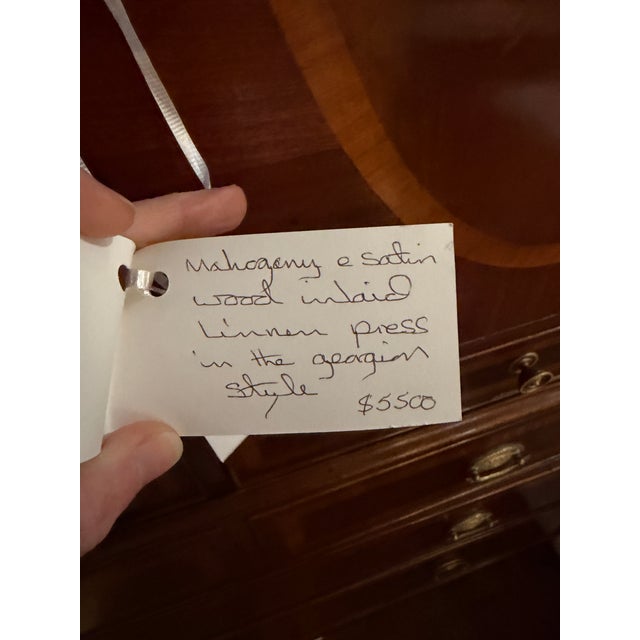 Mahogany e satin
wood inlaid
Linnen press
in the georgian
style $5500